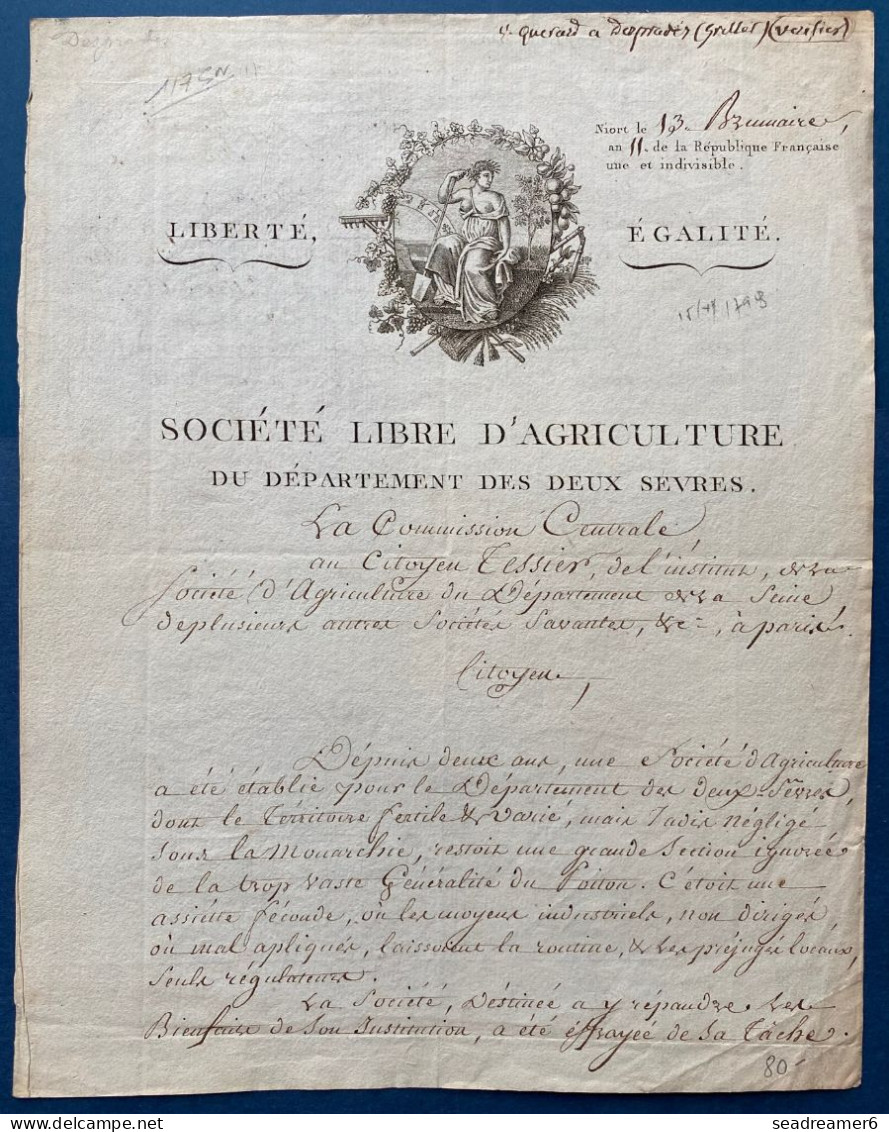 Desprades
a desprades (Grellet) (verifier)
117 GN
Niort le 13. Brumaire,
an 11. de la République Française
une et indivisible.
LIBERTÉ,
ÉGALITÉ.
SOCIÉTÉ LIBRE D'AGRICULTURE
DU DÉPARTEMENT DES DEUX SEVRES.
La Commission Centrale
au Citoyen Tessier, de l'institut, de la
Société d'Agriculture du Département de la Seine
deplusieurs autres Sociétés Savantes, &c, à paris.
Citoyen,
Dépuis deux ans, une Société d'Agriculture
a été établie pour le Département des deux-Sèvres,
dont le Térritoire fertile & varié, mais Jadis négligé
sous la Monarchie, restoit une grande Section ignorée
de la trop vaste Généralité du Poitou. C'étoit une
assiette féconde, où les moyens industriels, non dirigés
où mal apliqués, laissoient la routine, & les préjugés locaux,
seuls régulateurs.
La Société, Déstinée a y répandre les
Bienfaits de Son Institution, a été éffrayeé de sa Tâche.
80-
seadreamer6
www.delcampe.net